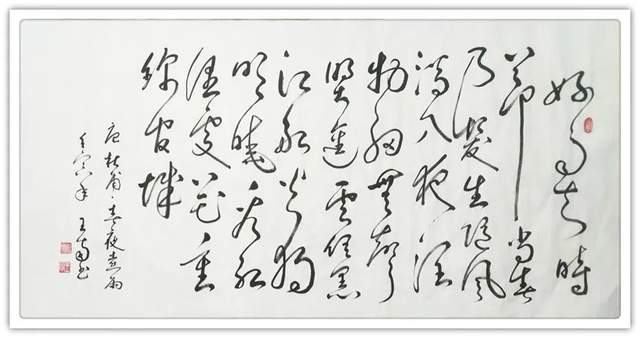 好雨知時
節當春
乃發生隨風
潛入夜潤
物細無聲
野徑雲俱黑
江船火獨
明曉看紅
濕處花重
錦官城
唐杜甫·春夜喜雨
壬寅年 王書